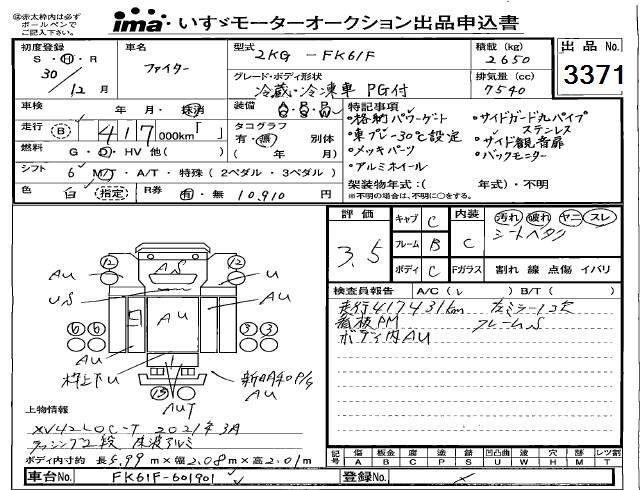 ※赤太枠内は必ず
ボールペンで
ご記入下さい。
ima いすゞモーターオークション出品申込書
初度登録 S・H・R 30年 12月
車名 ファイター
型式 2KG－FK61F
積載(kg) 2650
出品No. 3371
グレード・ボディ形状 冷蔵・冷凍車 PG付
排気量(cc) 7540
車検 年・月・抹消
装備
特記事項
・格納パワーゲート
・サイドガード丸パイプ
ステンレス
走行 B 417,000km「 」
タコグラフ 有・無 別体
( 年 月)
・-30℃設定
・サイド観音扉
・メッキパーツ
・バックモニター
・アルミホイール
燃料 G・D・HV 他( )
シフト 6 M/T・A/T・特殊(2ペダル・3ペダル)
架装物年式:( 年式)・不明
※不明の場合は、不明に○をする。
色 白 (指定)
R券 有・無 10,910円
評価 3.5
キャブ C
内装 C
汚れ 破れ ヤニ スレ
シートヘタリ
フレーム B
ボディ C
Fガラス 割れ 線 点傷 イバリ
検査員報告 A/C(レ) B/T( )
走行417431km
左ミラー1コ欠
看板PM
フレームS
ボディ内AU
12 AS 12
AU U
US AU U
6 6 3 3
AU AU
枠上下U
AU
15
AUT
上物情報
XV42LOC-T 2021年3月
ラッシング2段 床波アルミ
ボディ内寸約 長5.99m×幅2.08m×高2.01m
記号 傷 A 板金 B 腐 C 塗 P 錆 S 凹凸曲 U W 穴 H 跡 M レツ割 T
車台No. FK61F-601901
登録No.